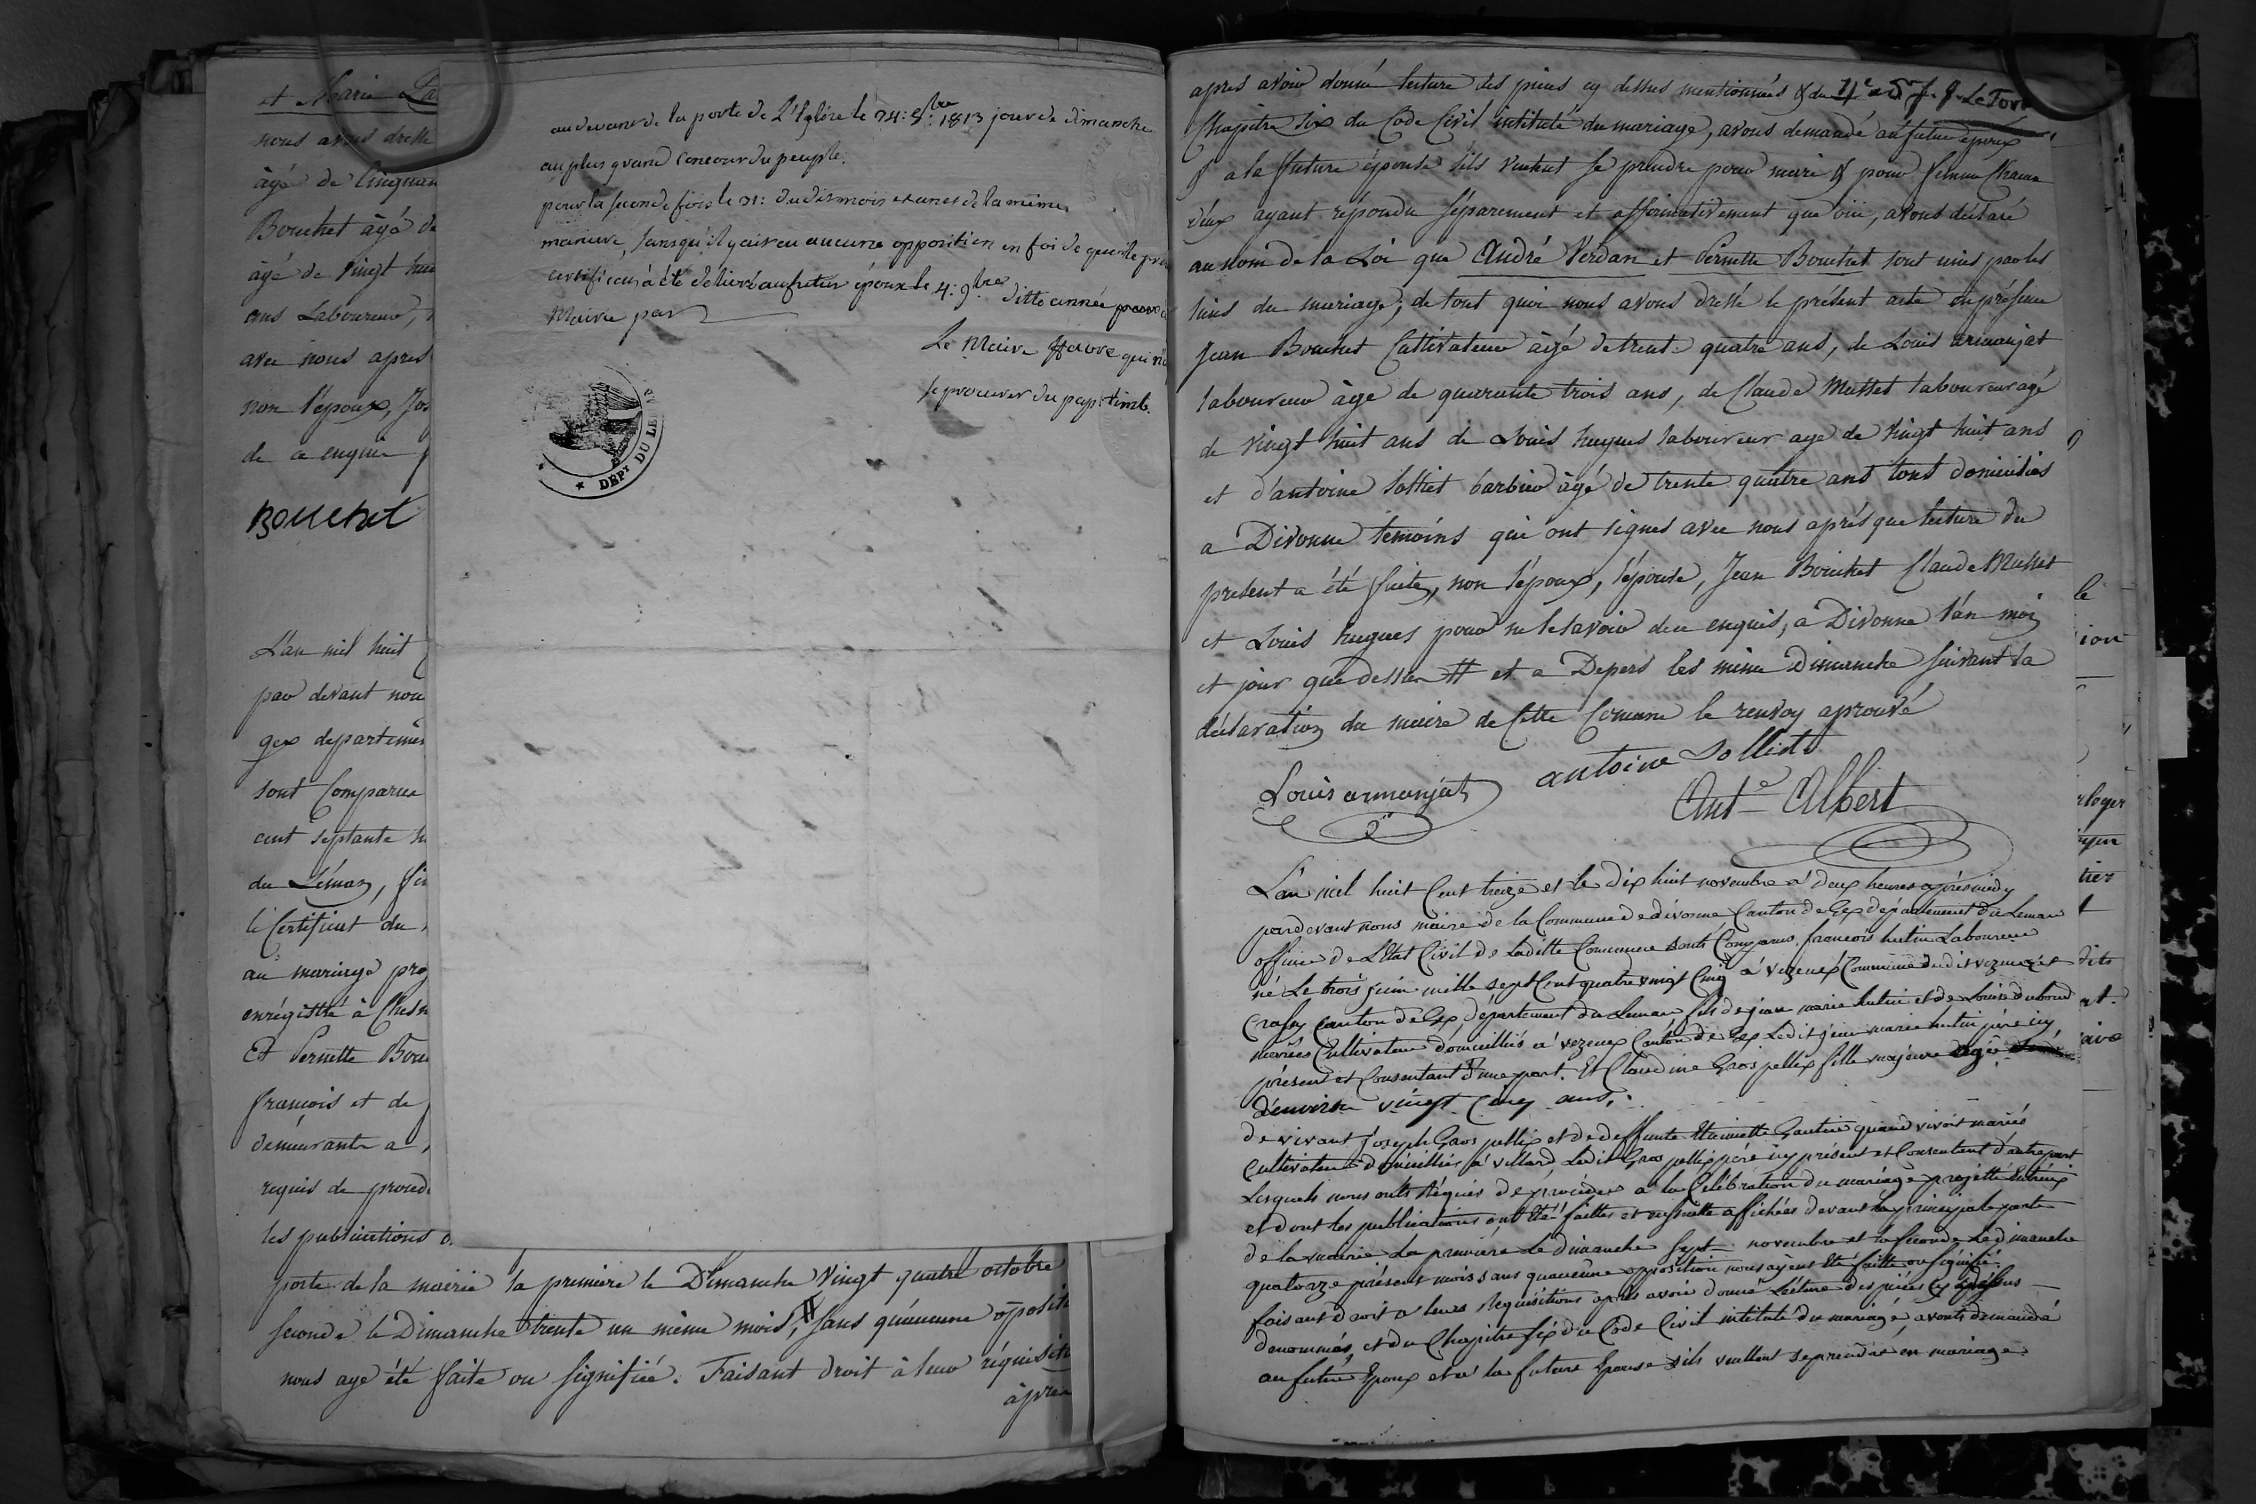 et Marie
nous avons dressé
âgé de Cinquan
Bouchet âgé de
âgé de vingt hui
ans Laboureur,
avec nous apres
non l'époux, Jos
de ce enquis
Bouchet
L'an mil huit
par devant nou
gex departemen
sont Comparus
cent septante
du Léman, fil
le Certificat du
au mariage proj
enrégistré à
Et Pernette Bou
françois et de
demeurante a
requis de procéd
les publications
porte de la mairie la premiere le Dimanche vingt quatre octobre
seconde le Dimanche trente un même mois, # sans qu'aucune opposit
nous aye été faite ou signifiée. Faisant droit à leur réquisit
âpres
au devant de la porte de L'Eglise le 24: 8.bre 1813 jour de dimanche
au plus grand Concour du peuple.
pour la seconde fois le 31: dudit mois et an et de la même
manière, sans qu'il y ait eu aucune opposition en foi de quoi le
certificat à été délivré au futur époux le 4: 9.bre ditte année
Maire par
Le Maire Favre qui
se procurer du pap: timb.
DÉPT DU LE
apres avoir donné lecture des pieces cy dessus mentionnés & du
Chapitre six du Code Civil intitulé du mariage, avons demandé au futur époux
& a la future épouse s'ils veulent se prendre pour mari & pour femme Chacun
d'eux ayant répondu séparement et affirmativement que oüi, avons déclaré
au nom de la Loi que André Verdan et Pernette Bouchet sont unis par les
liens du mariage; de tout quoi nous avons dressé le présent acte en présence
Jean Bouchet Cultivateur âgé de trente quatre ans, de Louis armanjat
laboureur âgé de quarante trois ans, de Claude Musset laboureur agé
de vingt huit ans de Louis hugues laboureur age de vingt huit ans
et d'antoine Solliet barbier âgé de trente quatre ans tous domiciliés
a Divonne temoins qui ont signés avec nous aprés que lecture du
present a été faite, non l'époux, l'épouse, Jean Bouchet Claude Musset
et Louis hugues pour ne le savoir de ce enquis, à Divonne l'an mois
et jour que dessus # et a Depers les même Dimanche suivant la
déclaration du maire de Cette Comune le renvoy aprouvé
Louis armanjat
antoine Solliet
Ant.e Albert
L'an mil huit Cent treize et le dix huit novembre a deux heures après midy
pardevant nous maire de la Commune de divonne Canton de Gex département du Leman
officier de L'Etat Civil de Laditte Commune sont Comparus françois hutin Laboureur
né Le trois juin mille sept Cent quatre vingt Cinq à vezenex Commune dudit vezenex et
Crassy Canton de Gex, département du Leman, fils de jean marie hutin et de Louise dubout
mariés Cultivateur domicilliés a vezenex Canton de Gex Ledit jean marie hutin père icy
présent et Consentant d'une part. Et Claudine Gros pellix fille majeure agée
d'environ vingt Cinq ans,
de vivant joseph Gros pellix et de deffunte Gautier quand vivoit mariés
Cultivateur domicilliés à villard, Ledit Gros pellix père icy présent et Consentant d'autre part
Lesquels nous onts réquis de proceder a la Célébration du mariage projetté entreux
et dont les publications ont été faittes et ensuitte affichées devant la principale porte
de la mairie La première Le dimanche sept novembre et la seconde Le dimanche
quatorze présent mois sans quaucune opposition nous ayent été faitte ou signifié.
faisant droit a leurs réquisitions après avoir donné Lécture des pièces cy dessus
denommés, et du Chapitre six du Code Civil intitulé du mariage, avonts demandé
au futur Epoux et a la future Epouse sils veullent seprendre en mariage